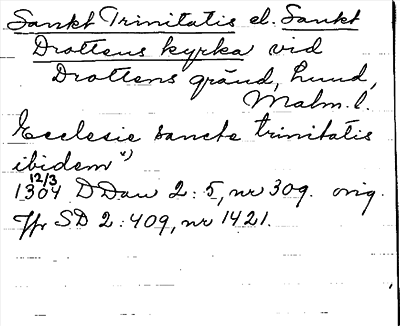 Sankt Trinitatis el. Sankt
Drottens kyrka vid
Drottens gränd, Lund,
Malm. l.
Ecclesie sancte trinitatis
ibidem")
12/3
1304 DDan 2:5, nr 309. orig.
Jfr SD 2:409, nr 1421.